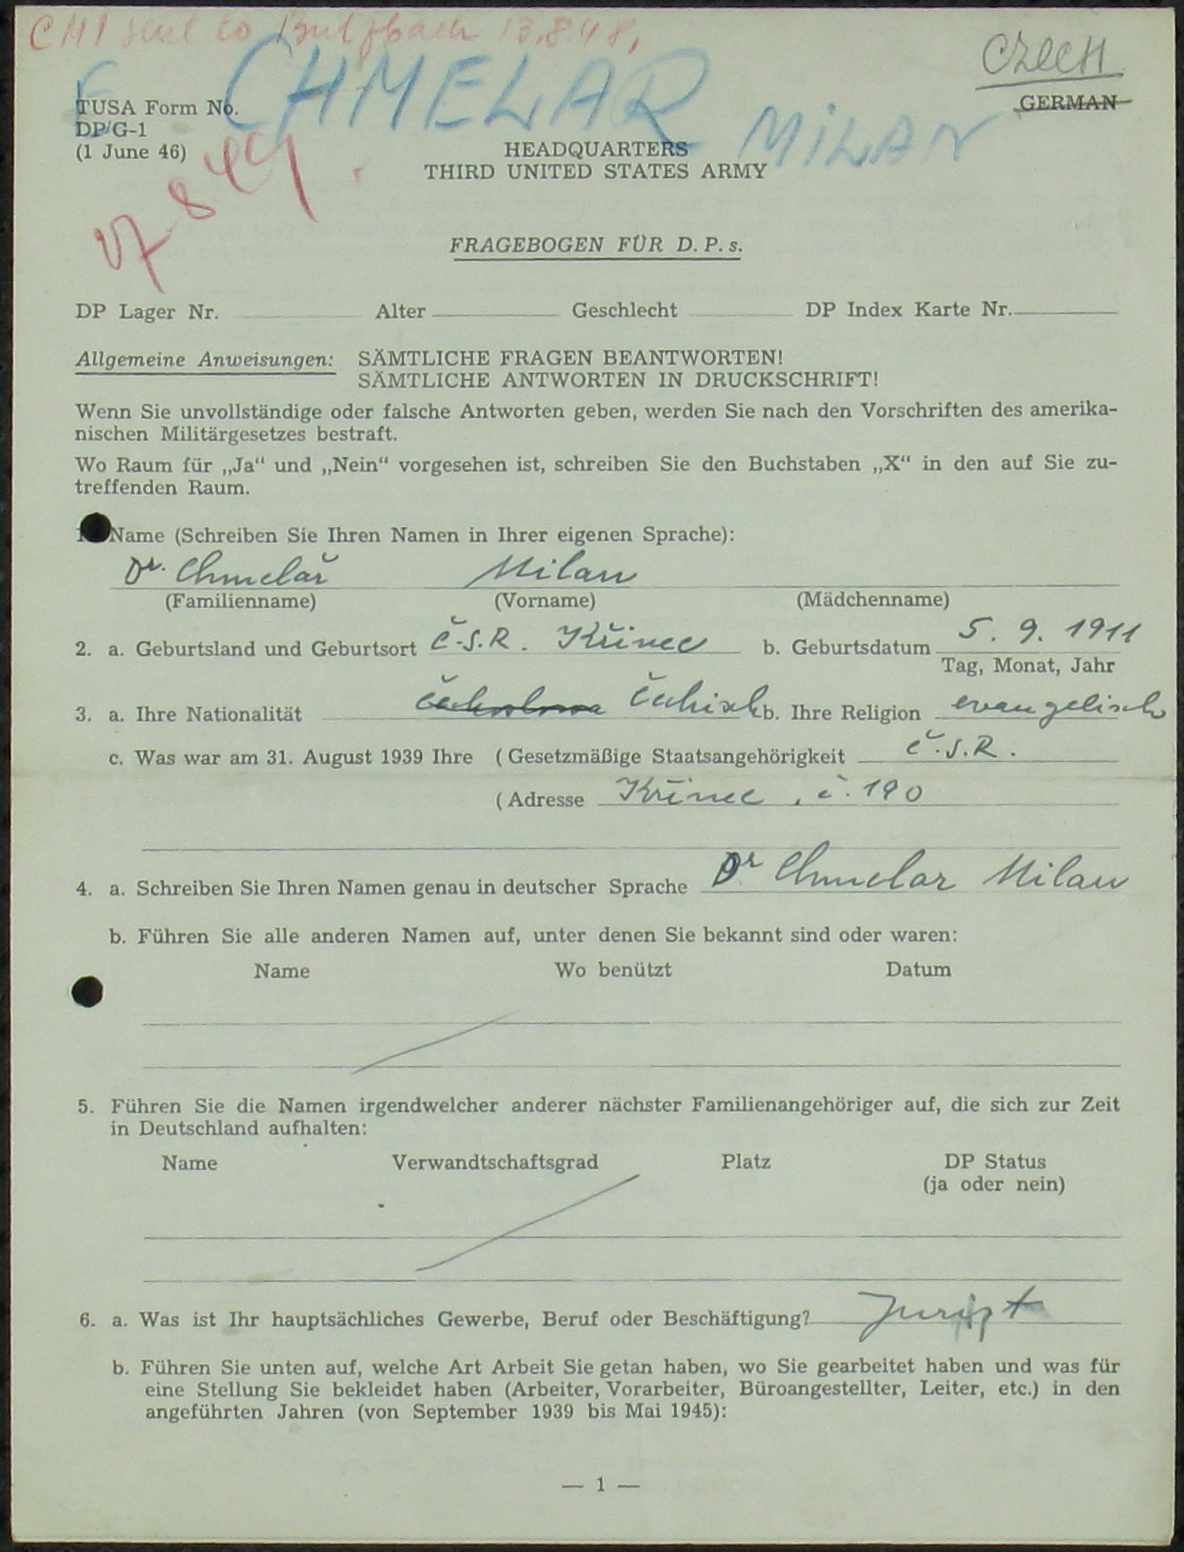 CM1 sent to Butzbach 13.8.48,
CZECH
CHMELAR MILAN
TUSA Form No.
DP/G-1
(1 June 46)
GERMAN
HEADQUARTERS
THIRD UNITED STATES ARMY
FRAGEBOGEN FÜR D. P. s.
DP Lager Nr. Alter Geschlecht DP Index Karte Nr.
Allgemeine Anweisungen: SÄMTLICHE FRAGEN BEANTWORTEN!
SÄMTLICHE ANTWORTEN IN DRUCKSCHRIFT!
Wenn Sie unvollständige oder falsche Antworten geben, werden Sie nach den Vorschriften des amerika-
nischen Militärgesetzes bestraft.
Wo Raum für „Ja“ und „Nein“ vorgesehen ist, schreiben Sie den Buchstaben „X“ in den auf Sie zu-
treffenden Raum.
Name (Schreiben Sie Ihren Namen in Ihrer eigenen Sprache):
Dr. Chmelař Milan
(Familienname) (Vorname) (Mädchenname)
2. a. Geburtsland und Geburtsort Č.S.R. Křinec b. Geburtsdatum 5. 9. 1911
Tag, Monat, Jahr
3. a. Ihre Nationalität čechisch b. Ihre Religion evangelisch
c. Was war am 31. August 1939 Ihre ( Gesetzmäßige Staatsangehörigkeit Č.S.R.
( Adresse Křinec, č. 190
4. a. Schreiben Sie Ihren Namen genau in deutscher Sprache Dr Chmelar Milan
b. Führen Sie alle anderen Namen auf, unter denen Sie bekannt sind oder waren:
Name Wo benützt Datum
5. Führen Sie die Namen irgendwelcher anderer nächster Familienangehöriger auf, die sich zur Zeit
in Deutschland aufhalten:
Name Verwandtschaftsgrad Platz DP Status
(ja oder nein)
6. a. Was ist Ihr hauptsächliches Gewerbe, Beruf oder Beschäftigung? Jurist
b. Führen Sie unten auf, welche Art Arbeit Sie getan haben, wo Sie gearbeitet haben und was für
eine Stellung Sie bekleidet haben (Arbeiter, Vorarbeiter, Büroangestellter, Leiter, etc.) in den
angeführten Jahren (von September 1939 bis Mai 1945):
— 1 —